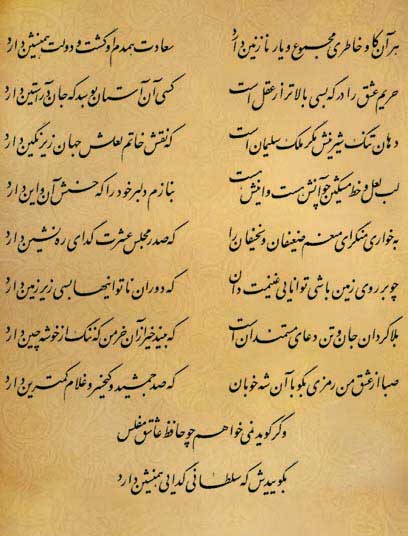 هر آن کاو خاطری مجموع و یار نازنین دارد سعادت همدم او گشت و دولت همنشین دارد
حریم عشق را درگه بسی بالاتر از عقل است کسی آن آستان بوسد که جان در آستین دارد
دهان تنگ شیرینش مگر ملک سلیمان است که نقش خاتم لعلش جهان زیر نگین دارد
لب لعل و خط مشکین چو آنش هست و اینش هست بنازم دلبر خود را که حسنش آن و این دارد
به خواری منگر ای منعم ضعیفان و نحیفان را که صدر مجلس عشرت گدای ره نشین دارد
چو بر روی زمین باشی توانایی غنیمت دان که دوران ناتوانیها بسی زیر زمین دارد
بلاگردان جان و تن دعای مستمندان است که بیند خیر از آن خرمن که ننگ از خوشه چین دارد
صبا از عشق من رمزی بگو با آن شه خوبان که صد جمشید و کیخسرو غلام کمترین دارد
و گر گوید نمی خواهم چو حافظ عاشق مفلس
بگوییدش که سلطانی گدایی همنشین دارد